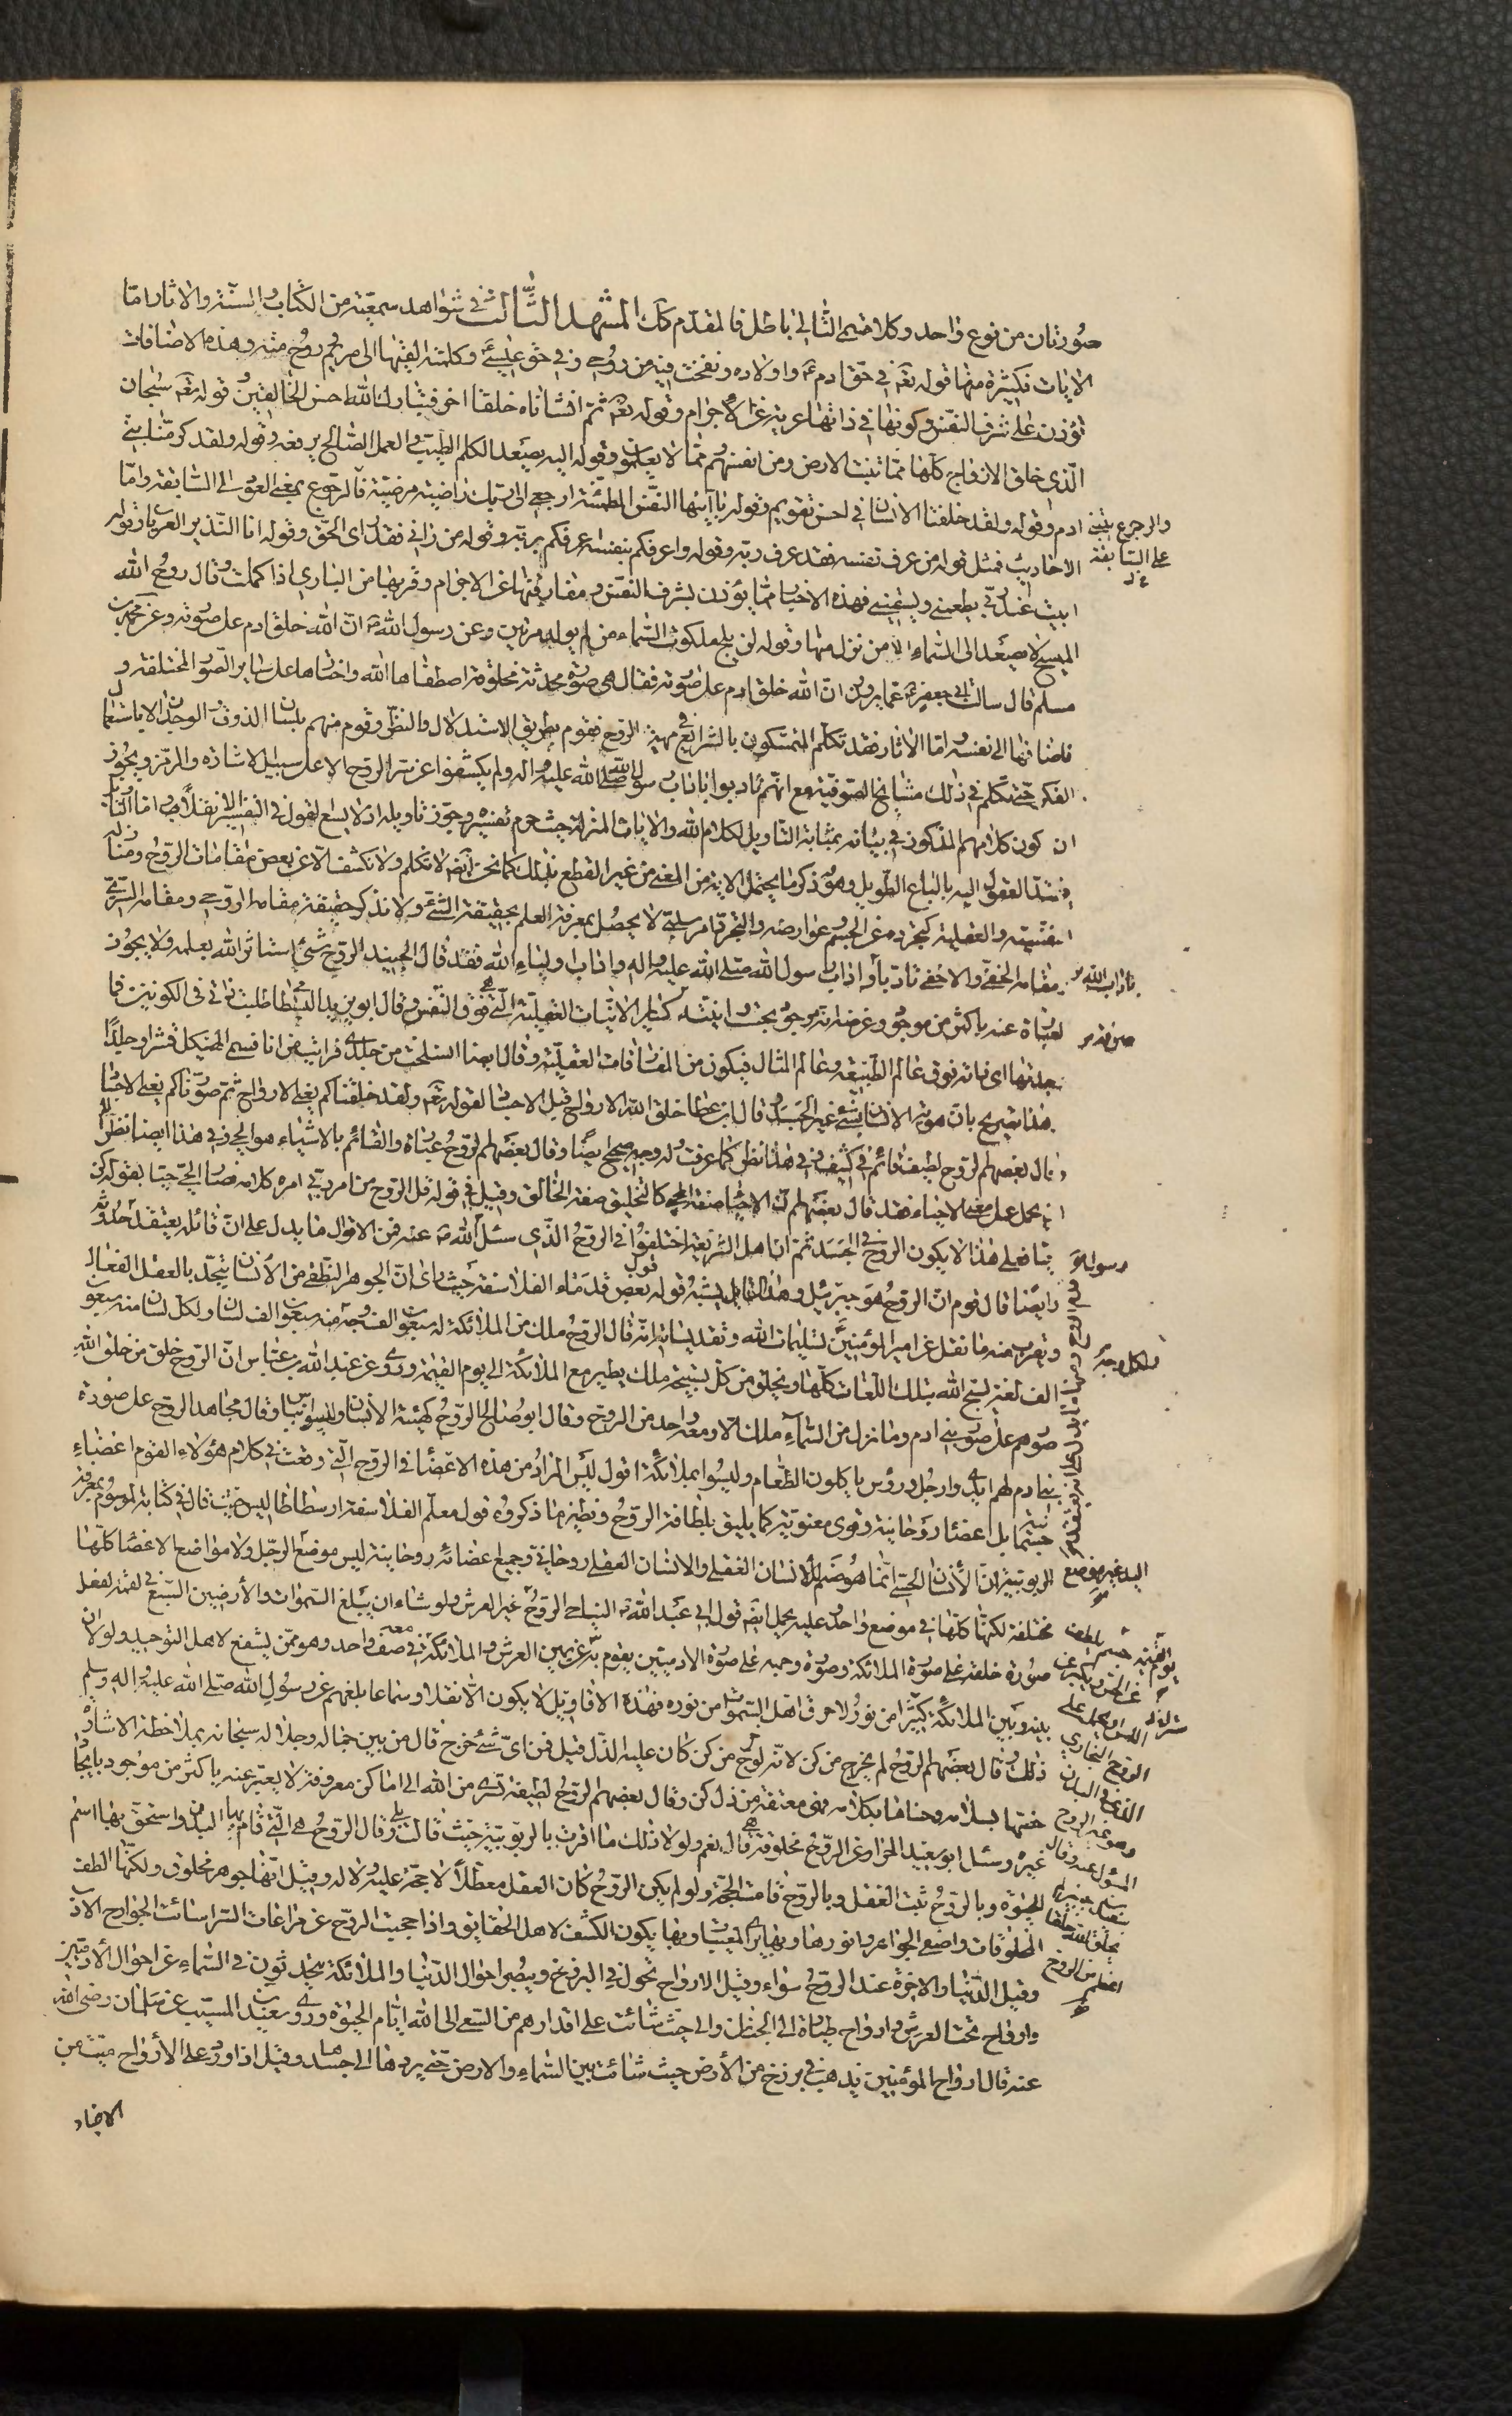 صورتان من نوع واحد وكلا ضمى الثانى باطل فالمقدم كك المشهد الثالث فى شواهد سمعية من الكتاب والسنة والاثار اما
الايات فكثيرة منها قوله تعم فى حق ادم ع واولاده ونفخت فيه من روحى وفى حق عيسى ع وكلمته القيها الى مريم وروح منه وهذه الاضافات
تؤذن على شرف النفس وكونها فى ذاتها عرية عن الاجرام وقوله تعم ثم انشاناه خلقا اخر فتبارك الله احسن الخالقين وقوله تعم سبحان
الذى خلق الازواج كلها مما تنبت الارض ومن انفسهم ومما لا يعلمون وقوله اليه يصعد الكلم الطيب والعمل الصالح يرفعه وقوله ولقد كرمنا بنى
ادم وقوله ولقد خلقنا الانسان فى احسن تقويم وقوله يا ايتها النفس المطمئنة ارجعى الى ربك راضية مرضية فالرجوع بمعنى العود الى السابقة واما
والرجوع يبتنى
على السابقة
الاحاديث فمثل قوله من عرف نفسه فقد عرف ربه وقوله واعرفكم بنفسه اعرفكم بربه وقوله من رانى فقد راى الحق وقوله انا النذير العريان وقوله
ابيت عند ربى يطعمنى ويسقينى فهذه الاخبار مما يؤذن بشرف النفس ومفارقتها عن الاجرام وقربها من البارى اذا كملت وقال روح الله
المسيح لا يصعد الى السماء الا من نزل منها وقوله لن يلج ملكوت السماء من لم يولد مرتين وعن رسول الله ص ان الله خلق ادم على صورته وعن محمد بن
مسلم قال سالت ابى جعفر ع عما يروون ان الله خلق ادم على صورته فقال هى صورة محدثة مخلوقة اصطفاها الله واختارها على ساير الصور المختلفة و
فاضافها الى نفسه واما الاثار فقد تكلم المتمسكون بالشرائع فى مهية الروح فقوم بطريق الاستدلال والنظر وقوم منهم بلسان الذوق والوجدان لا باستعمال
الفكر حتى تكلم فى ذلك مشايخ الصوفية مع انهم تادبوا باداب رسول الله صلى الله عليه واله ولم يكشفوا عن سر الروح الا على سبيل الاشارة والرمز ويجوز
ان يكون كلامهم المذكور فى بيانه بمثابة التاويل لكلام الله والايات المنزلة حيث حرم تفسيره وجوز تاويله اذ لا يسع القول فى التفسير الا نقلا واما التاويل
فتمتد العقول اليه بالباع الطويل وهو ذكر ما يحتمل الاية من المعنى من غير القطع بذلك كما نحن ايضا لا نتكلم ولا نكشف الا عن بعض مقامات الروح ومنازله
النفسية والعقلية كتجرده عن الجسم وعوارضه
مقامه الخفى والاخفى تادبا باداب رسول الله صلى الله عليه واله واداب اولياء الله فقد قال الجنيد الروح شئ استاثر الله بعلمه ولا يجوز
باداب الله
العبارة عنه باكثر من موجود وغرضه انه موجود بحت وانيته كساير الانيات العقلية التى هى فوق النفس وقال ابو يزيد البسطامى طلبت ذاتى فى الكونين فما
وجدتها اى ذاته فوق عالم الطبيعة وعالم المثال فيكون من المفارقات العقلية وقال ايضا انسلخت من جلدى فرايت من انا فسمى الهيكل قشرا وجلدا
هذا تصريح بان هوية الانسان شئ غير الجسد وقال ابن عطا خلق الله الارواح قبل الاجساد لقوله تعم ولقد خلقناكم يعنى الارواح ثم صورناكم يعنى الاجساد
وقال بعضهم الروح لطيف قائم فى كثيف وفى هذا نظر كما عرفت وله وجه صحيح ايضا وقال بعضهم الروح عبارة والقائم بالاشياء هو الحق وفى هذا ايضا نظر
ان يحمل على معنى الاحياء فقد قال بعضهم ان الاحياء صفة المحيى كالتخليق صفة الخالق وقيل فى قوله قل الروح من امر ربى امره كلامه فصار الحى حيا بقوله كن
حيا فعلى هذا لا يكون الروح فى الجسد ثم ان اهل الشريعة اختلفوا فى الروح الذى سئل رسول الله ص عنه فمن الاقوال ما يدل على ان قائله يعتقد حدوثه
وايضا قال قوم ان الروح هو جبرئيل وهذا القايل يشبه قوله قول بعض قدماء الفلاسفة حيث راى ان الجوهر النطقى من الانسان يتحد بالعقل الفعال
ويقرب منه ما نقل عن امير المؤمنين تسليمات الله وتقديساته انه قال الروح ملك من الملائكة له سبعون الف وجه ولكل وجه منه سبعون الف لسان ولكل لسان منه سبعون
الف لغة يسبح الله بتلك اللغات كلها ويخلق من كل تسبيحة ملك يطير مع الملائكة الى يوم القيمة وروى عن عبد الله بن عباس ان الروح خلق من خلق الله
صورهم على صور بنى ادم وما نزل من السماء ملك الا ومعه واحد من الروح وقال ابو صالح الروح كهيئة الانسان وليسوا بناس وقال مجاهد الروح على صورة
بنى ادم لهم ايدى وارجل ورؤس ياكلون الطعام وليسوا بملائكة اقول ليس المراد من هذه الاعضاء فى الروح التى وقعت فى كلام هؤلاء القوم اعضاء
جسمانية بل اعضاء روحانية وقوى معنوية كما يليق بلطافة الروح ونظير ما ذكروه قول معلم الفلاسفة ارسطاطاليس حيث قال فى كتابه الموسوم بمعرفة
الربوبية ان الانسان الحسى انما هو صنم للانسان العقلى والانسان العقلى روحانى وجميع اعضائه روحانية ليس موضع الرجل ولا مواضع الاعضاء كلها
اليد غير موضع
مختلفة لكنها كلها فى موضع واحد وعليه يحمل ايضا قول ابى عبد الله النباجى الروح غير العرش ولو شاء ان يبلغ السموات والارضين السبع فى لقمة لفعل
صورة خلقه على صورة الملائكة وصورة وجهه على صورة الادميين يقوم يوم القيمة عن يمين العرش والملائكة معه فى صف واحد وهو ممن يشفع لاهل التوحيد ولولا ان
بينه وبين الملائكة سترا من نور لاحرق اهل السموات من نوره فهذه الاقاويل لا يكون الا نقلا وسماعا بلغهم عن رسول الله صلى الله عليه واله وسلم
ذلك وقال بعضهم الروح لم يخرج من كن لانه لو خرج من كن كان عليه الذل قيل فمن اى شئ خرج قال من بين جماله وجلاله سبحانه بملاحظة الاشارة
خصها بسلامه وحياها بكلامه فهى معتقة من ذل كن وقال بعضهم الروح لطيفة تسرى من الله الى اماكن معروفة لا يعبر عنه باكثر من موجود بايجاد
غيره وسئل ابو سعيد الخراز عن الروح مخلوقة هى قال نعم ولولا ذلك ما اقرت بالربوبية حيث قالت بلى وقال الروح هى التى قام بها البدن واستحق بها اسم
الحيوة وبالروح ثبت العقل وبالروح قامت الحجة ولو لم يكن الروح كان العقل معطلا لا حجة عليه ولا له وقيل انها جوهر مخلوق ولكنها الطف
المخلوقات واصفى الجواهر وانورها وبها يرى المغيبات وبها يكون الكشف لاهل الحقايق واذا حجبت الروح عن مراعات السر اسائت الجوارح الادب
وقيل الدنيا والاخرة عند الروح سواء وقيل الارواح تجول فى البرزخ وتبصر احوال الدنيا والملائكة يتحدثون فى السماء عن احوال الادميين
وارواح تحت العرش وارواح طيارة الى الجنان والى حيث شائت على اقدارهم من السعى الى الله ايام الحيوة وروى سعيد بن المسيب عن سلمان رضى الله
عنه قال ارواح المؤمنين تذهب فى برزخ من الارض حيث شائت بين السماء والارض حتى يردها الى جسدها وقيل اذا ورد على الارواح ميت من
الاحياء